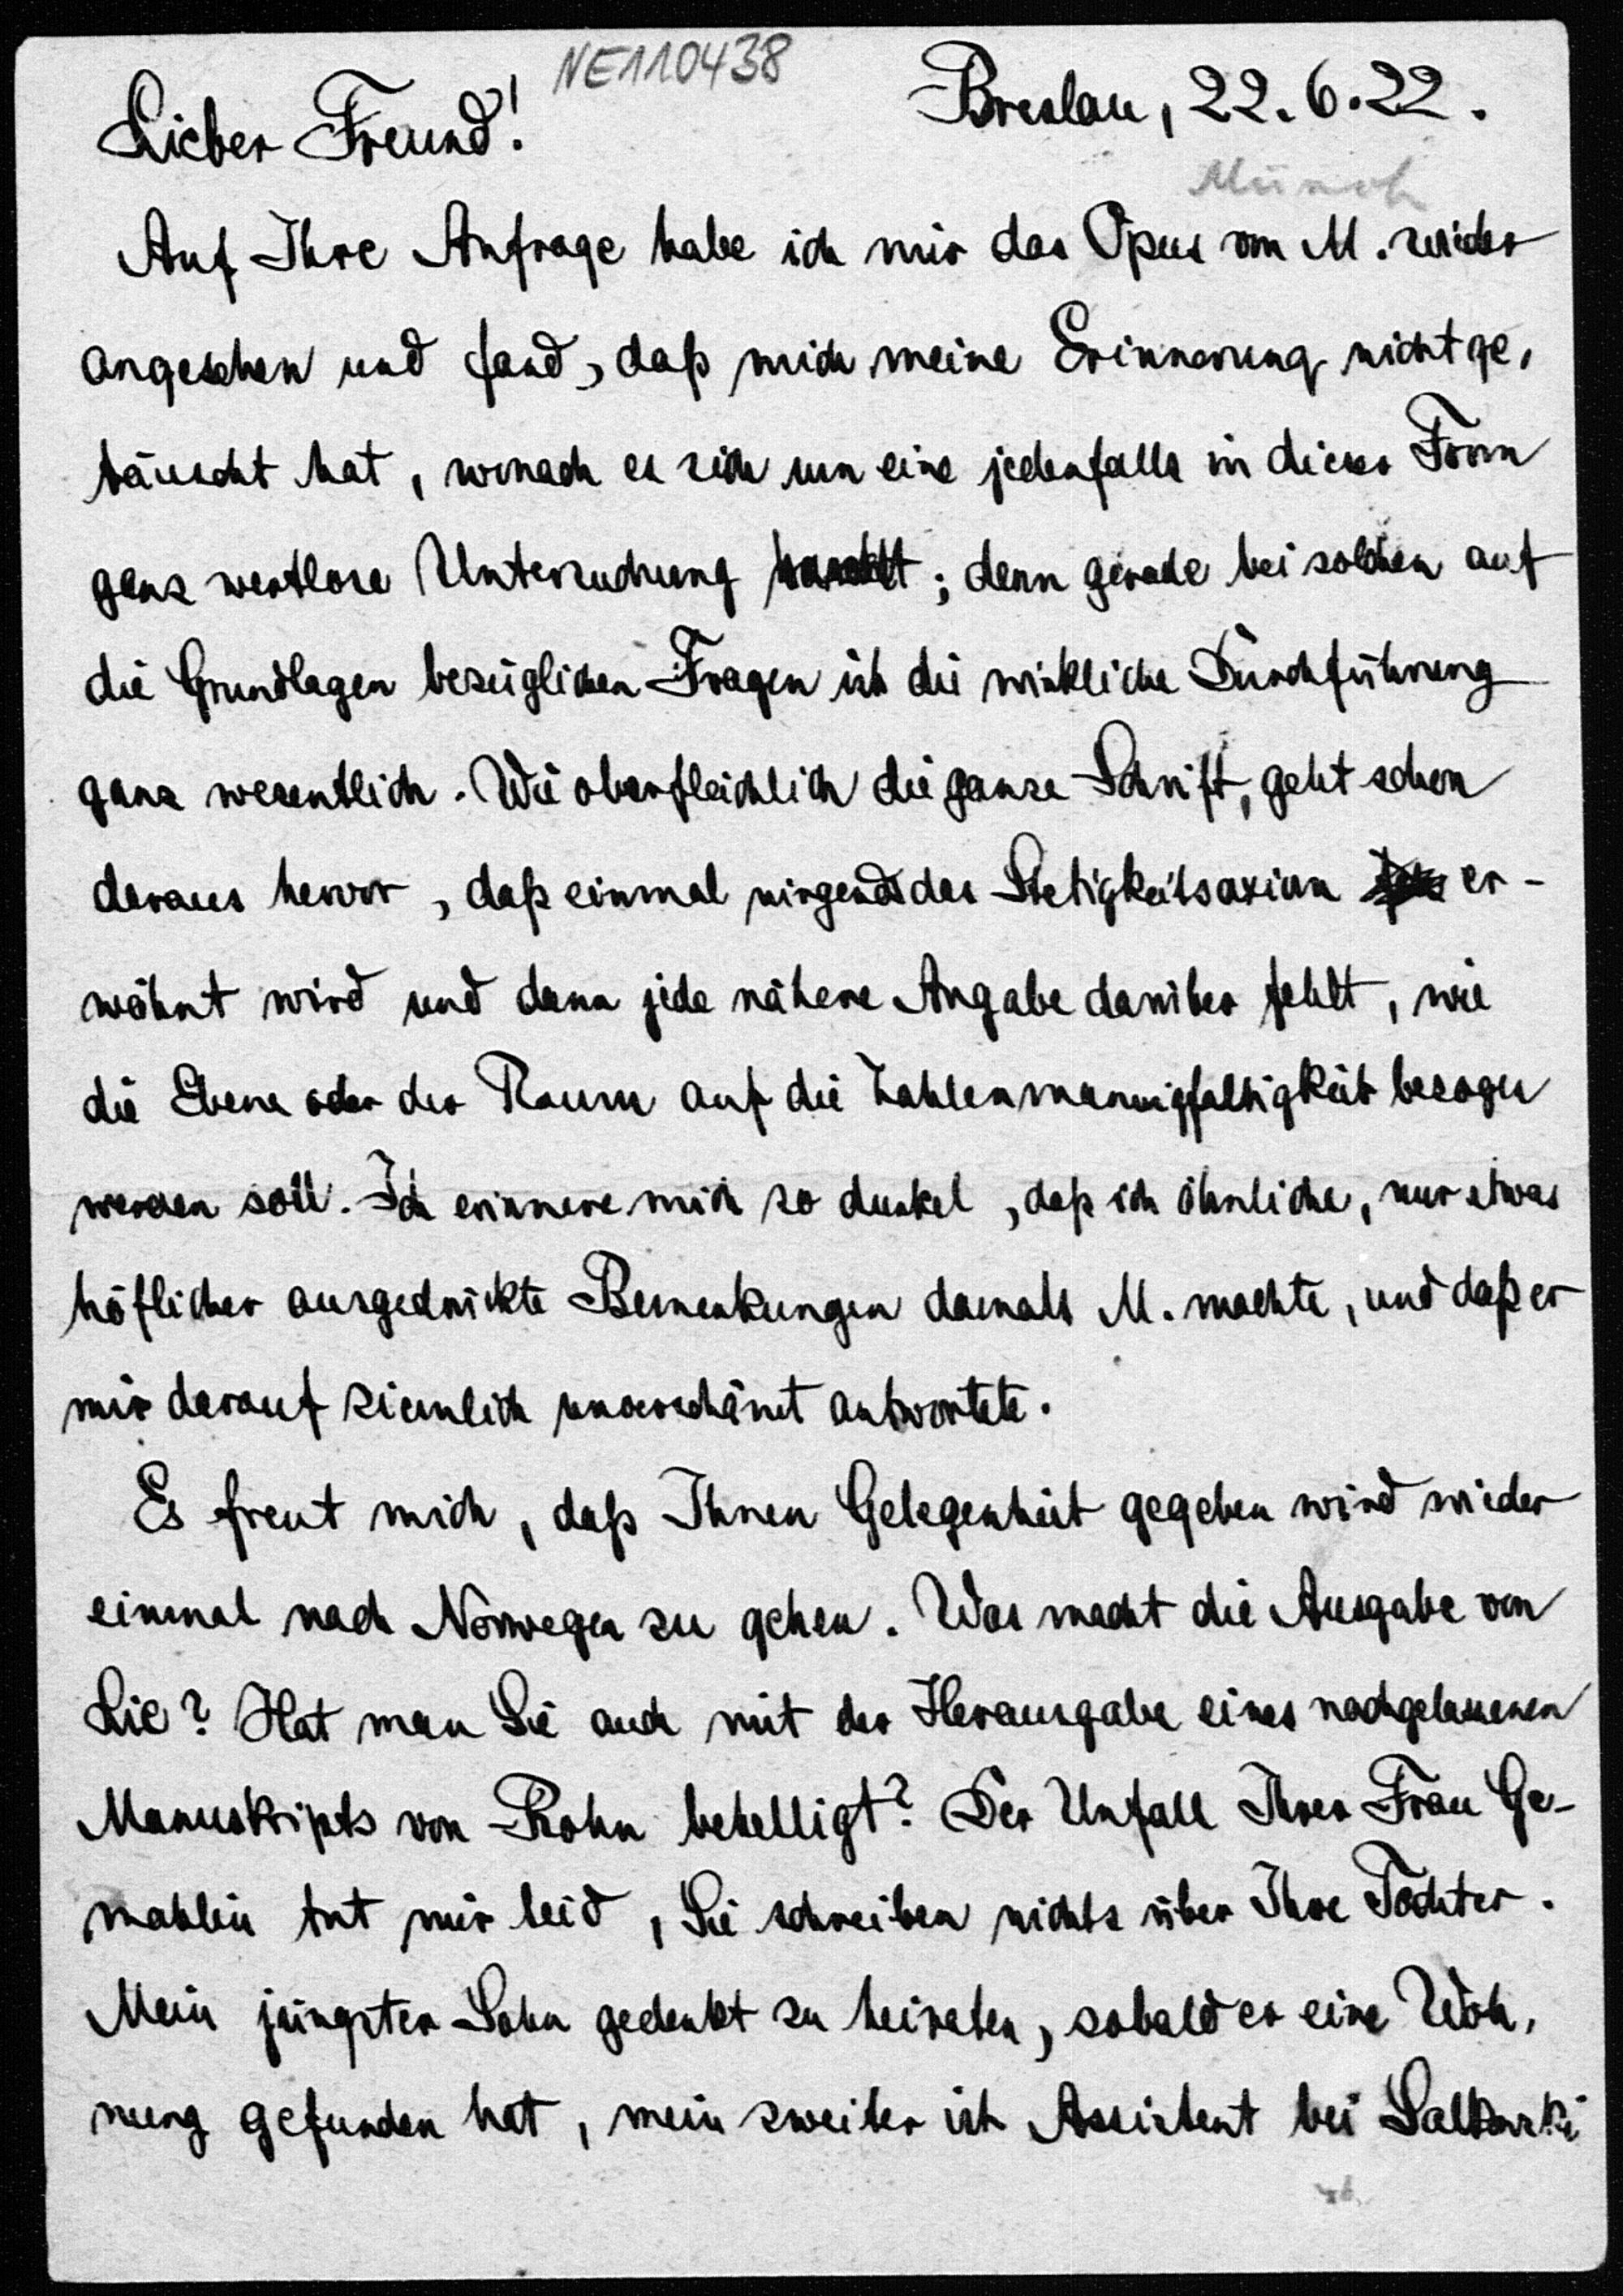 NE110438
Breslau, 22.6.22.
Lieber Freund!
Münch
Auf Ihre Anfrage habe ich mir das Opus von M. wieder
angesehen und fand, daß mich meine Erinnerung nicht ge,
täuscht hat, wonach es sich um eine jedenfalls in dieser Form
ganz wertlose Untersuchung handelt; denn gerade bei solchen auf
die Grundlagen bezüglichen Fragen ist die wirkliche Durchführung
ganz wesentlich. Wie oberflächlich die ganze Schrift, geht schon
daraus hervor, daß einmal nirgends das Stetigkeitsaxiom er-
wähnt wird und dann jede nähere Angabe darüber fehlt, wie
die Ebene oder der Raum auf die Zahlenmannigfaltigkeit bezogen
werden soll. Ich erinnere mich so dunkel, daß ich ähnliche, nur etwas
höflicher ausgedrückte Bemerkungen damals M. machte, und daß er
mir darauf ziemlich unverschämt antwortete.
Es freut mich, daß Ihnen Gelegenheit gegeben wird wieder
einmal nach Norwegen zu gehen. Was macht die Ausgabe von
Lie? Hat man Sie auch mit der Herausgabe eines nachgelassenen
Manuskripts von Rohn behelligt? Der Unfall Ihrer Frau Ge-
mahlin tut mir leid, Sie schreiben nichts über Ihre Tochter.
Mein jüngster Sohn gedenkt zu heiraten, sobald er eine Woh,
nung gefunden hat, mein zweiter ist Assistent bei Salkowski